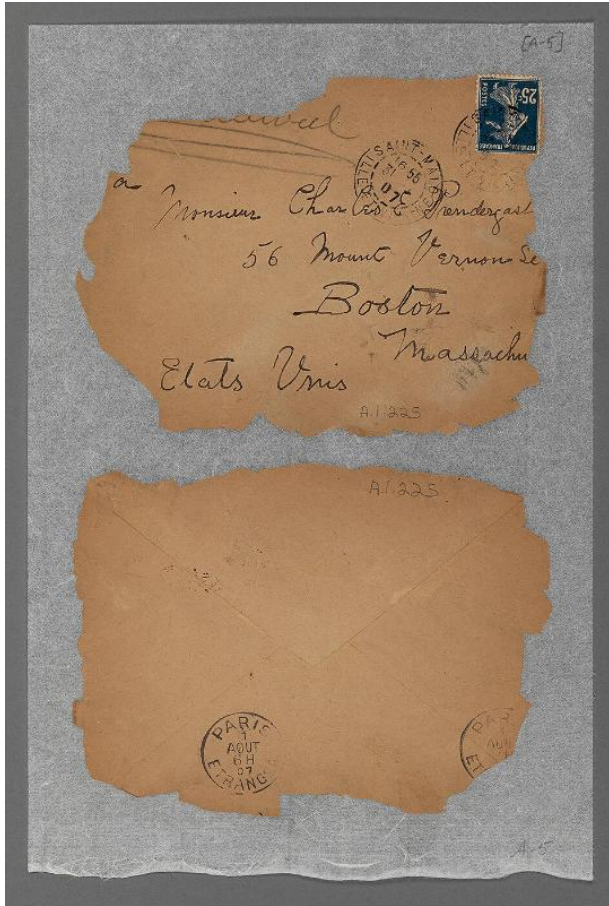 [A-5]
25c
POSTES
SAINT-MALO
16 55
07
a
Monsieur Charles Prendergast
56 Mount Vernon
Boston
Massachu
Etats Unis
A.1.225
A.1.225
PARIS
1
AOUT
6H
07
ETRANG
PA
AOU
ET
A-5